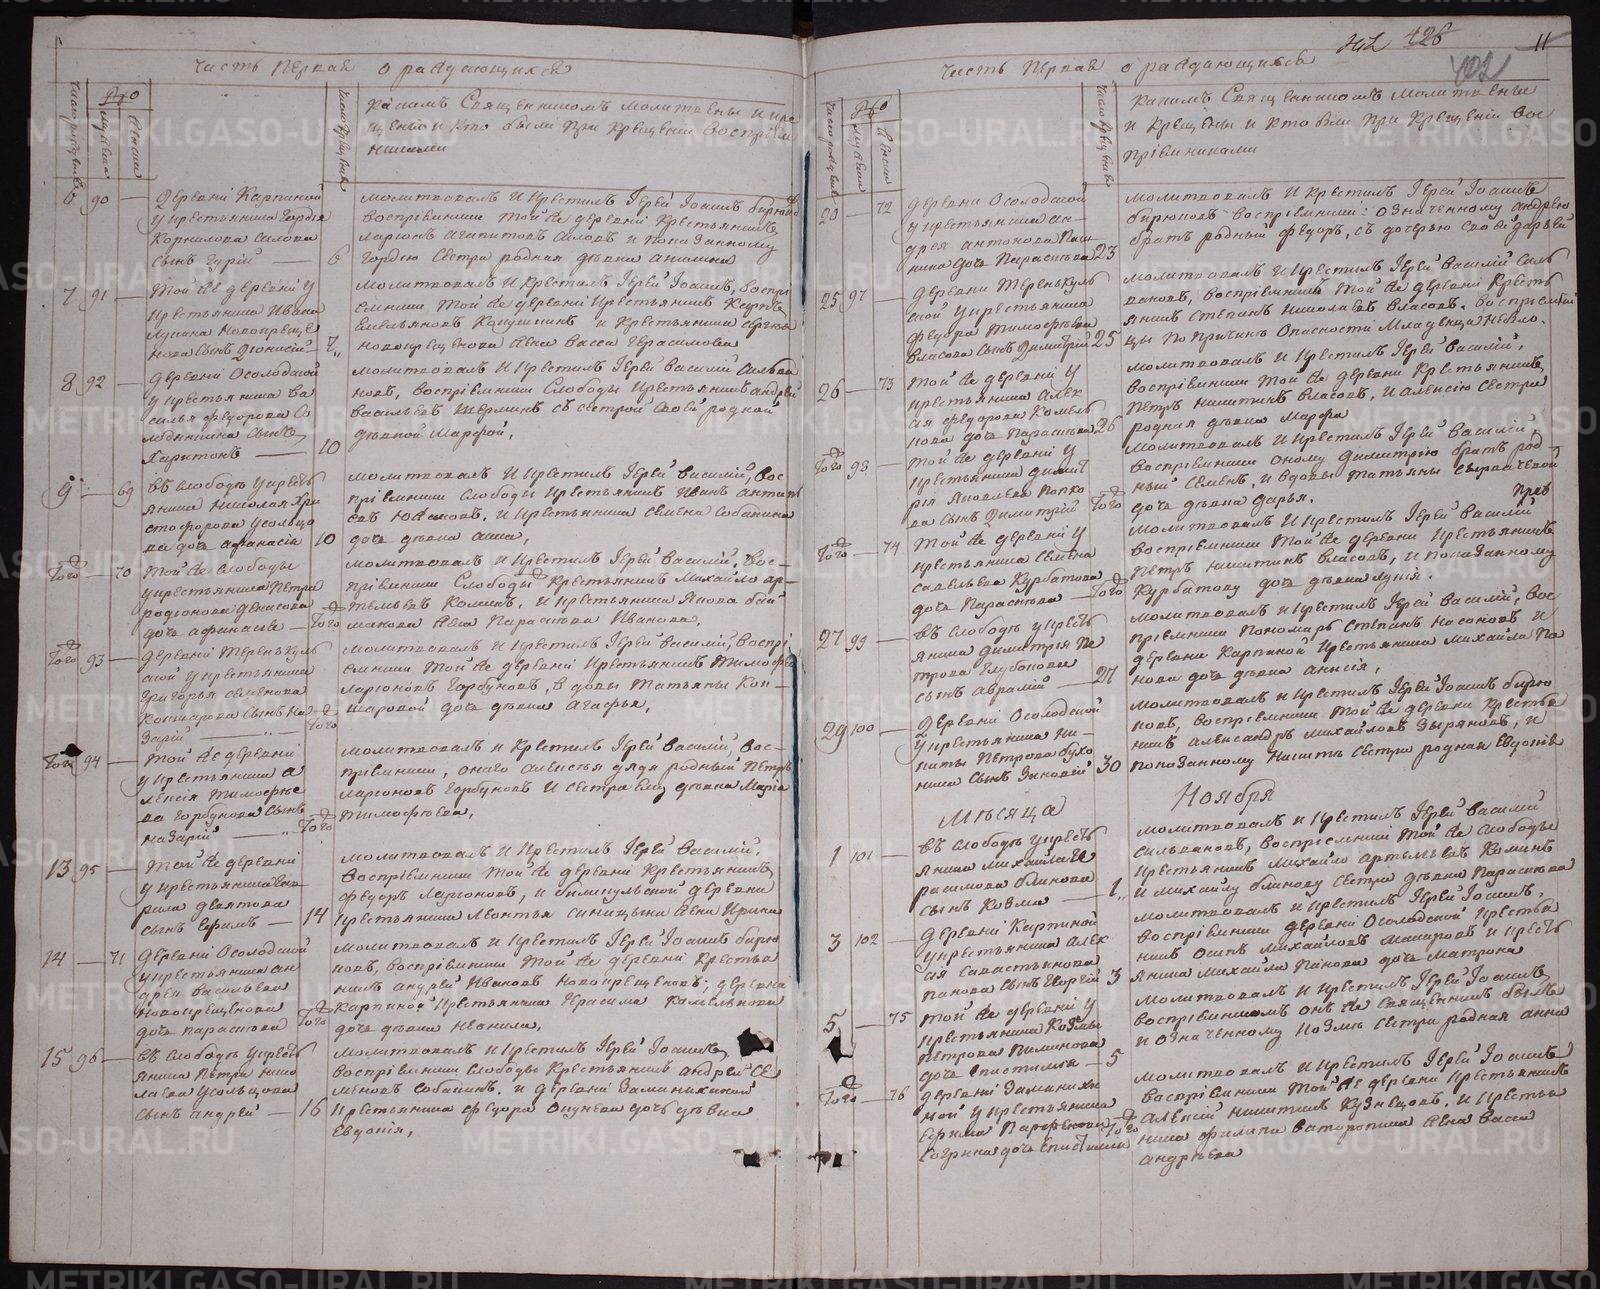 часть первая о раждающихся
число рожденiя
Что
мужеска
женска
число крещенiя
какимъ Священникомъ молитвены и кре
щены и кто были при крещенiи воспрiем
никами
6 90 — Деревни Карпиной
у крестьянина Гордiя
Корнилова Силова
сынъ Гурiй — 6
молитвовалъ и крестилъ Iерей Iоаннъ бирюко
воспрiемники той же деревни крестьянинъ
Ларiонъ Агапитовъ Силовъ и показанному
Гордею сестра родная девка Акилина
7 91 — Той же деревни у
крестьянина Ивана
Лукина Новокреще
нова сынъ Дiонисiй — 7
молитвовалъ и крестилъ Iерей Iоаннъ, воспрi
емники той же деревни крестьянинъ Карпъ
Емельяновъ Кокушкинъ и крестьянина Сергея
Новокрещенова жена Васса Герасимова
8 92 — деревни Осолодкой
у крестьянина Ва
силья Федорова Со
лодянкина сынъ
Харитонъ — 10
молитвовалъ и крестилъ Iерей Василiй Сильва
новъ, воспрiемники Слободы крестьянинъ Андрей
Васильевъ Шерминъ съ сестрой своей родной
девкой Марфой,
9 — 69 въ слободе у кресть
янина Николая Хри
стофорова Усольцо
ва дочь Афанасiя 10
молитвовалъ и крестилъ Iерей Василiй, вос
прiемники Слободы крестьянинъ Иванъ Антип
евъ Южаковъ, и крестьянина Семена Собакина
дочь девка Анна,
Того — 70 той же слободы
у крестьянина Петра
Родiонова Денисова
дочь Афанасья — Того
молитвовалъ и крестилъ Iерей Василiй, вос-
прiемники Слободы крестьянинъ Михайло ар-
темьевъ Коминъ, и крестьянина Якова Баж
макова жена Параскева Иванова,
Того 93 — деревни Теренькуль
ской у крестьянина
Григорья Семенова
Кошкарова сынъ На
зарiй — Того
молитвовалъ и крестилъ Iерей Василiй, воспрi
емники той же деревни крестьянинъ Тимофей
Ларiоновъ Горбуновъ, вдовы Татьяны Кош-
каровой дочь девка Агафья,
Того 94 — той же деревни
у крестьянина А
лексiя Тимофее
ва Горбунова сынъ
Назарiй — Того
молитвовалъ и крестилъ Iерей Василiй, вос-
прiемники, онаго Алексея дядя родный Петръ
Ларiоновъ Горбуновъ и сестра ему девка Марiя
Тимофеева,
13 95 — той же деревни
у крестьянина Кар
рила Девятова
сынъ Ефимъ — 14
молитвовалъ и крестилъ Iерей Василiй,
воспрiемники той же деревни крестьянинъ
Федоръ Ларiоновъ, и билимкульской деревни
крестьянина Леонтья Синицына жена Ирина
14 — 71 Деревни Осолодкой
у крестьянина Ан
дрея Васильева
Новокрещенова
дочь Параскева Того
молитвовалъ и крестилъ Iерей Iоаннъ бирю
ковъ, воспрiемники той же деревни крестья
нинъ Андрей Ивановъ Новокрещеновъ, деревни
Карпиной крестьянина Герасима Комельнкова
дочь девка Неонила,
15 96 — въ Слободе у кресть
янина Петра Нико
лаева Усольцова
сынъ Андрей — 16
молитвовалъ и крестилъ Iерей Iоаннъ,
воспрiемники Слободы крестьянинъ Андрей Се
меновъ Собакинъ, и деревни Заманихиной
крестьянина Федора Окунева дочь девка
Евдокiя,
426 11
402
часть первая о раждающихся
число рожденiя
Что
мужеска
женска
число крещенiя
какимъ Священникомъ молитвены
и крещены и кто были при крещенiи вос
прiемниками
20 — 72 деревни Осолодкой
у крестьянина Ан-
дрея Антонова Паш
нина дочь Параскева 23
молитвовалъ и крестилъ Iерей Iоаннъ
бирюковъ воспрiемники: означенному Андрею
братъ родный Федоръ, съ дочерью своей Дарьей
25 97 — деревни Теренькуль
ской у крестьянина
Федора Тимофеева
Власова сынъ Димитрiй 25
молитвовалъ и крестилъ Iерей Василiй Силь
вановъ, воспрiемникъ той же деревни кресть
янинъ Степанъ Николаевъ Власовъ. воспрiемни
цы по причине опасности младенца небыло.
26 — 73 той же деревни у
крестьянина Алек
сiя Федорова Комель
кова дочь Параскева 26
молитвовалъ и крестилъ Iерей Василiй,
воспрiемники той же деревни крестьянинъ
Петръ Никитинъ Власовъ, и Алексiю сестра
родная девка Марфа
Того 98 — той же деревни у
крестьянина Димит
рiя Яковлева Попко
ва сынъ Димитрiй Того
молитвовалъ и крестилъ Iерей Василiй,
воспрiемники оному Димитрiю братъ род-
ный Семенъ, и вдовы Татьяны Сыркачевой
дочь девка Дарья.
Того — 74 той же деревни у
крестьянина Семена
Савельева Курбатова
дочь Параскева — Того
молитвовалъ и крестилъ Iерей Василiй
воспрiемники той же деревни крестьянинъ
Петръ Никитинъ Власовъ, и показанному
Курбатову дочь девка Лукiя.
27 99 — въ Слободе у кресть
янина Димитрiя Пе
трова Глубокова
сынъ Аврамiй — 27
молитвовалъ и крестилъ Iерей Василiй, вос
прiемники Пономарь Степанъ Насоновъ и
деревни Карпиной крестьянина Михайла Па
нова дочь девка Анисiя,
29 100 — Деревни Осолодкой
у крестьянина Ни-
киты Петрова Сухо
нина сынъ Зиновiй 30
молитвовалъ и крестилъ Iерей Iоаннъ бирю
ковъ, воспрiемники той же деревни крестья
нинъ Александръ Михайловъ Зыряновъ, и
показанному Никите сестра родная Евдокiя
Месяца Ноября
1 101 — въ Слободе у кресть
янина Михайла Ге
расимова Блинова
сынъ Козма — 1
молитвовалъ и крестилъ Iерей Василiй
Сильвановъ, воспрiемники той же слободы
крестьянинъ Михайло Артемьевъ Коминъ
и Михайлу Блинову сестра девка Параскева
3 102 — деревни Карпиной
у крестьянина Алек
сiя Савастьянова
Панова сынъ Георгiй 3
молитвовалъ и крестилъ Iерей Iоаннъ,
воспрiемники деревни Осолодской крестья
нинъ Осипъ Михайловъ Макаровъ и кресть
янина Михайла Панова дочь Матрона
5 — 75 той же деревни у
крестьянина Козмы
Петрова Пиминова
дочь Епистимiя — 5
молитвовалъ и крестилъ Iерей Iоаннъ
воспрiемникомъ онъ же Священникъ былъ
и означенному Козме сестра родная Анна
Того — 76 деревни Заманихи
ной у крестьянина
Ефима Парфенова
Согрина дочь Епистимiя Того
молитвовалъ и крестилъ Iерей Iоаннъ
воспрiемники той же деревни крестьянинъ
Алексiй Никитинъ Кузнецовъ, и крестья
нина Филипа Ваторопина жена Васса
Андреева
METRIKI.GASO-URAL.RU